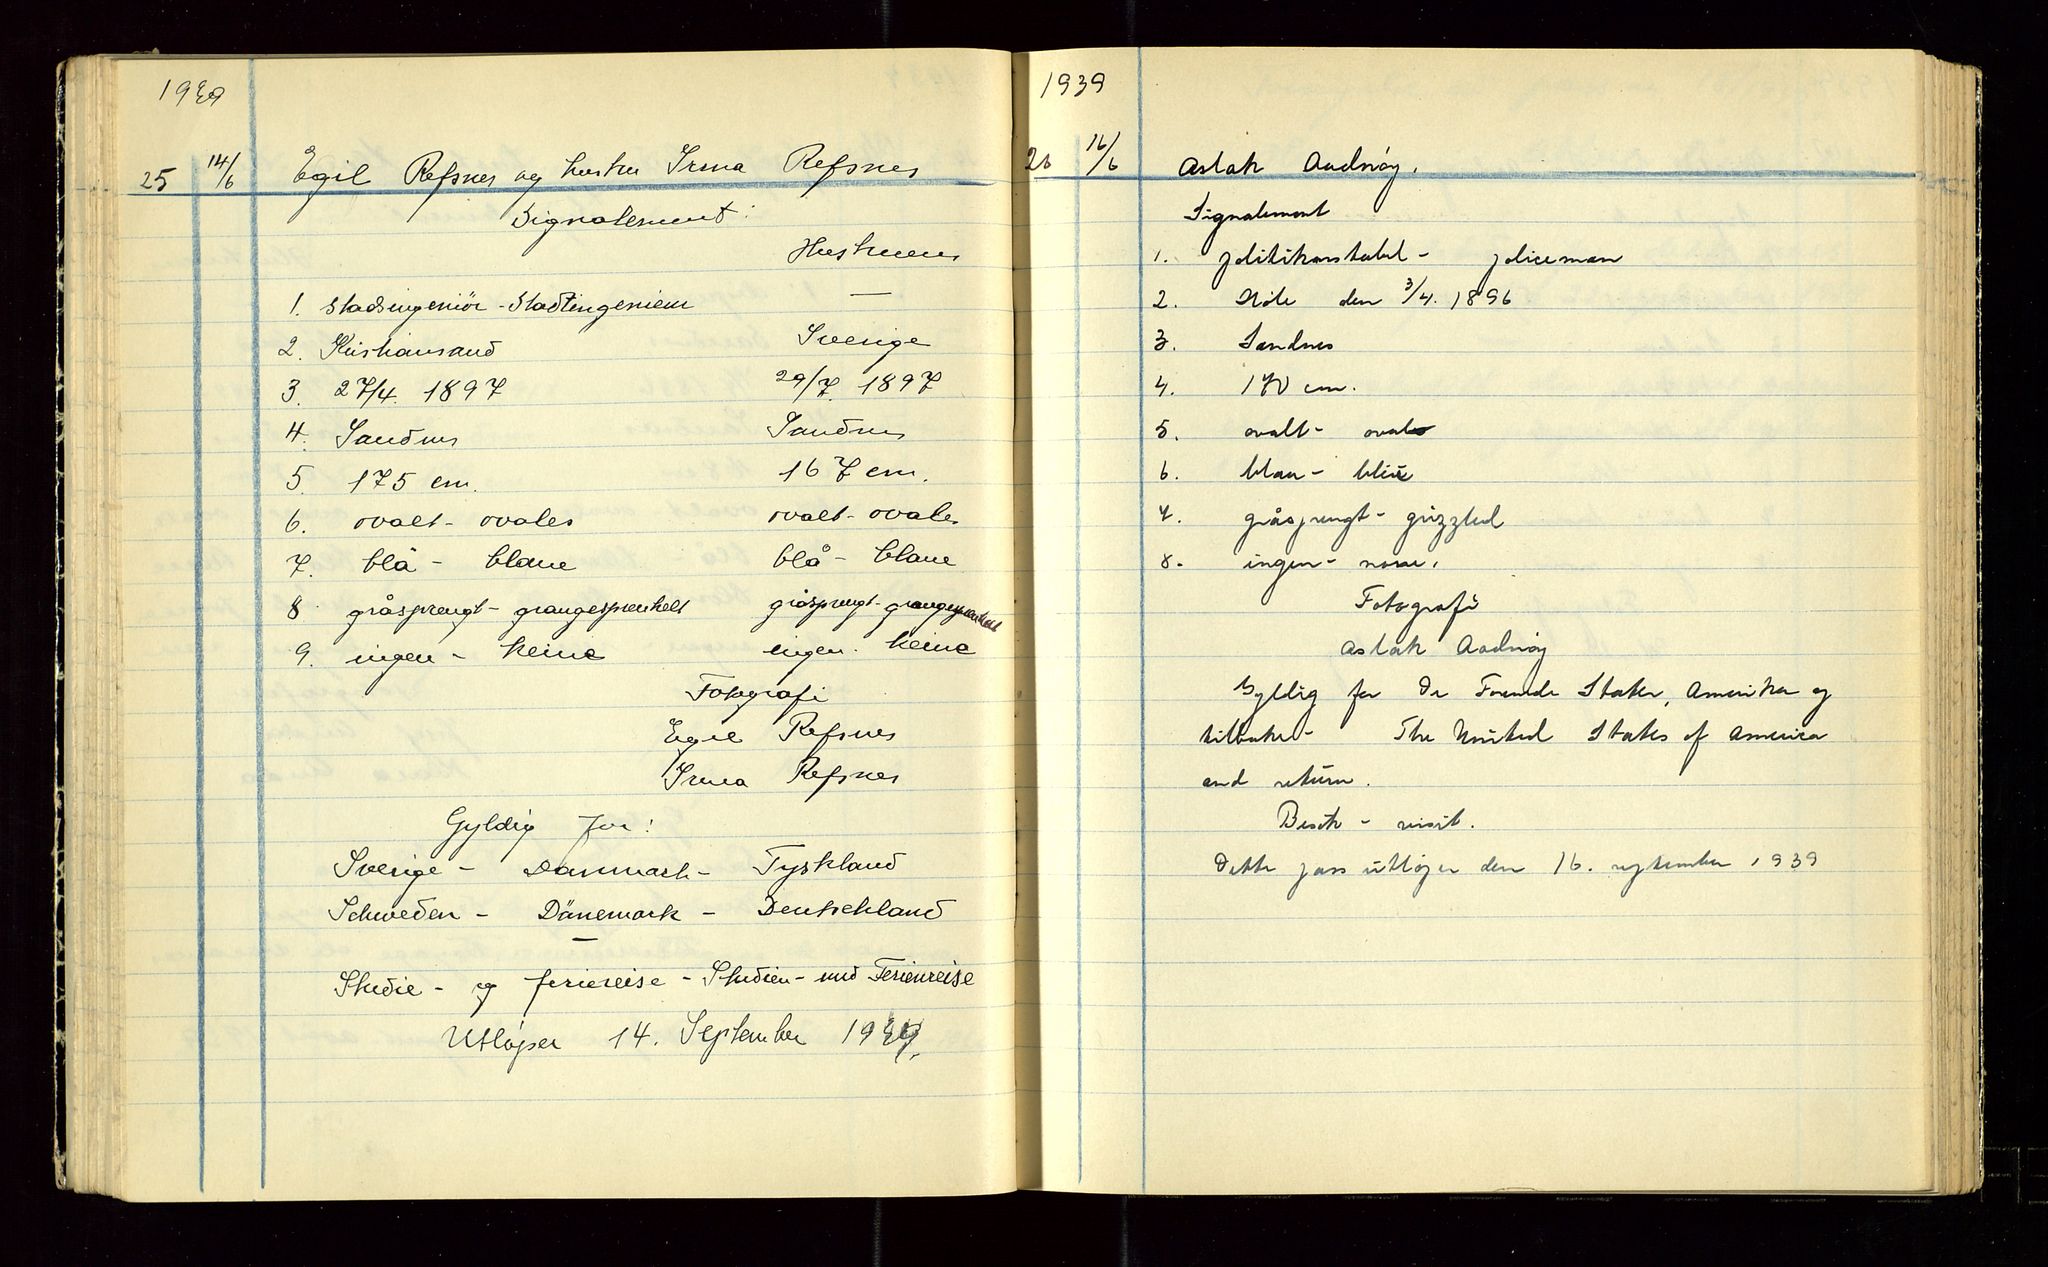 1939
25 14/6 Egil Refsnes og hustru Irma Refsnes
Signalement:
Hustruen
1. Stadsingeniør - Stadtingenieur —
2. Kristiansand Sverige
3. 27/4. 1897 29/7. 1897
4. Sandnes Sandnes
5. 175 cm. 167 cm.
6. ovalt - ovales ovalt - ovales
7. blå - blaue blå - blaue
8 gråsprengt - graugesprenkelt gråsprengt - graugesprenkelt
9. ingen - keine ingen. keine
Fotografi
Egil Refsnes
Irma Refsnes
Gyldig for:
Sverige - Danmark - Tyskland
Schweden - Dänemark - Deutschland
—
Studie - og feriereise - Studien - und Ferienreise
Utløper 14. September 1939.
1939
26 16/6 Aslak Aadnøy.
Signalement
1. politikonstabel - policeman
2. Høle den 3/4. 1896
3. Sandnes
4. 170 cm.
5. ovalt - oval
6. blaa - blue
7. gråsprengt - grizzled
8. ingen - none.
Fotografi
Aslak Aadnøy
Gyldig for De Forende Stater, Amerika og
tilbake - The United States of America
and return.
Besøk - visit.
Dette pass utløper den 16. september 1939